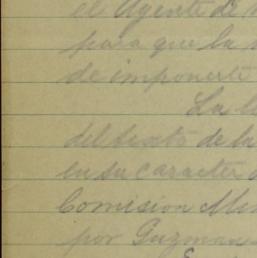 el Agente de
para que la
de imponerte
La
del texto de la
en su caracter
Comision
por Guzman